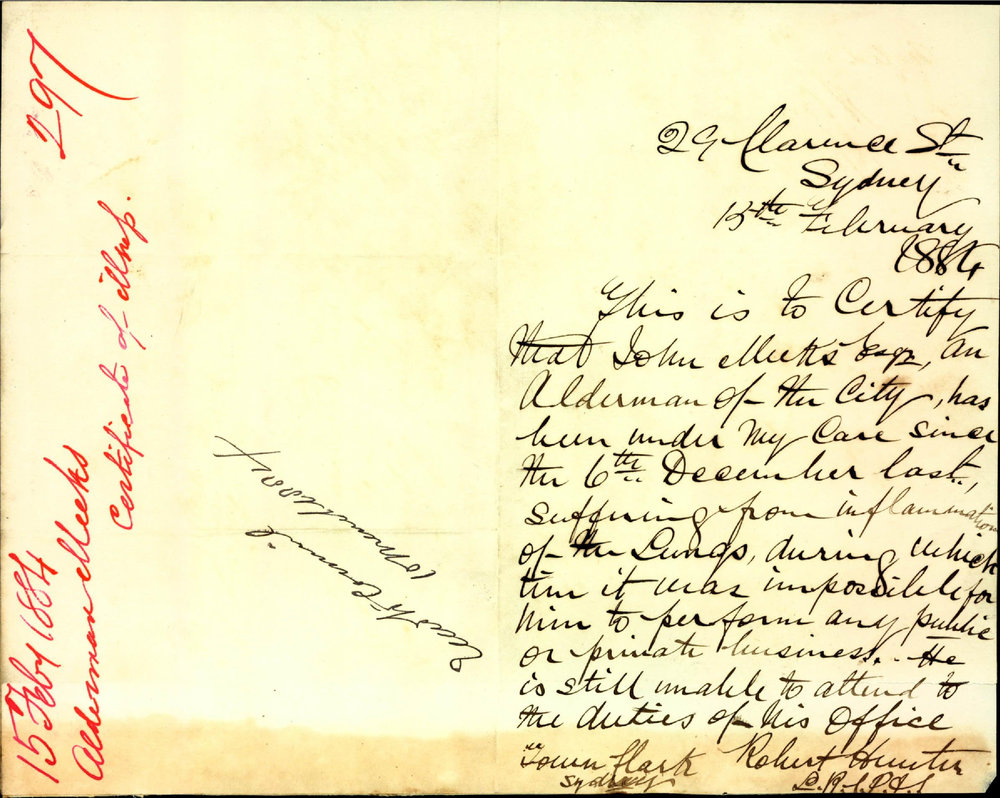 15 Feby 1884 297
Alderman Meeks
Certificate of illness.
29 Clarence St
Sydney
15th February
1884
This is to Certify
that John Meeks Esqr, an
Alderman of the City, has
been under My Care since
the 6th December last,
suffering from inflammation
of the Lungs, during which
time it was impossible for
him to perform any public
or private business. He
is still unable to attend to
the duties of his Office
Town Clerk Robert Hunter
Sydney